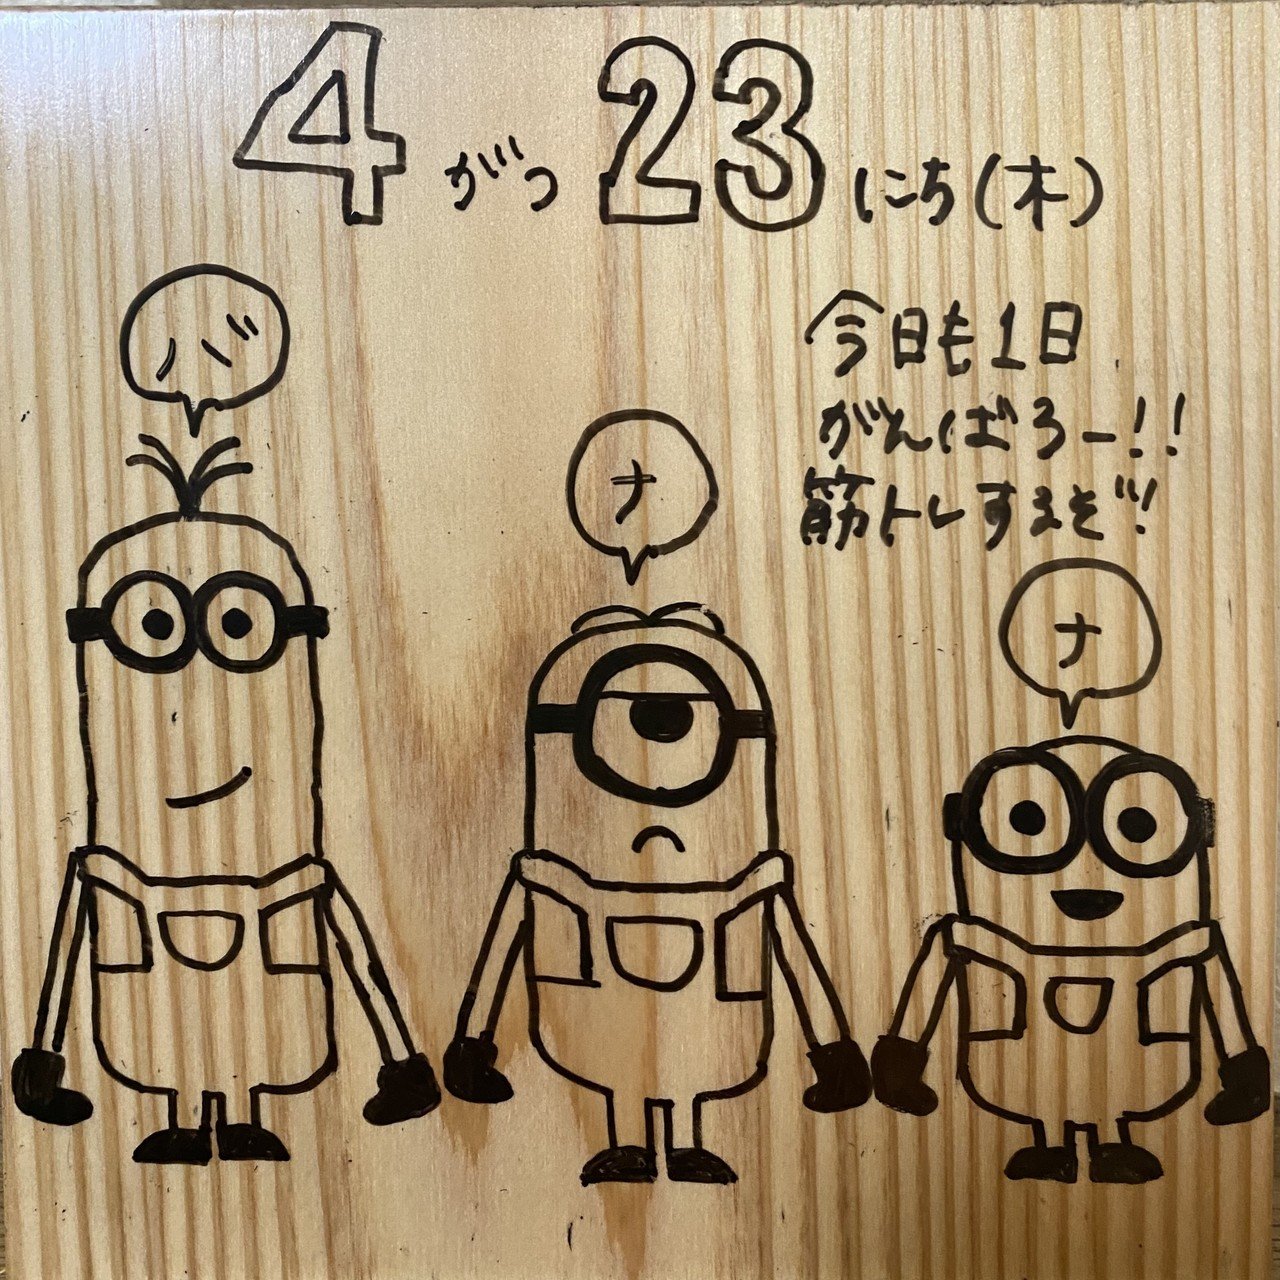 4がつ23にち(木)
今日も1日
がんばろー!!
筋トレするぞ!!
バ
ナ
ナ